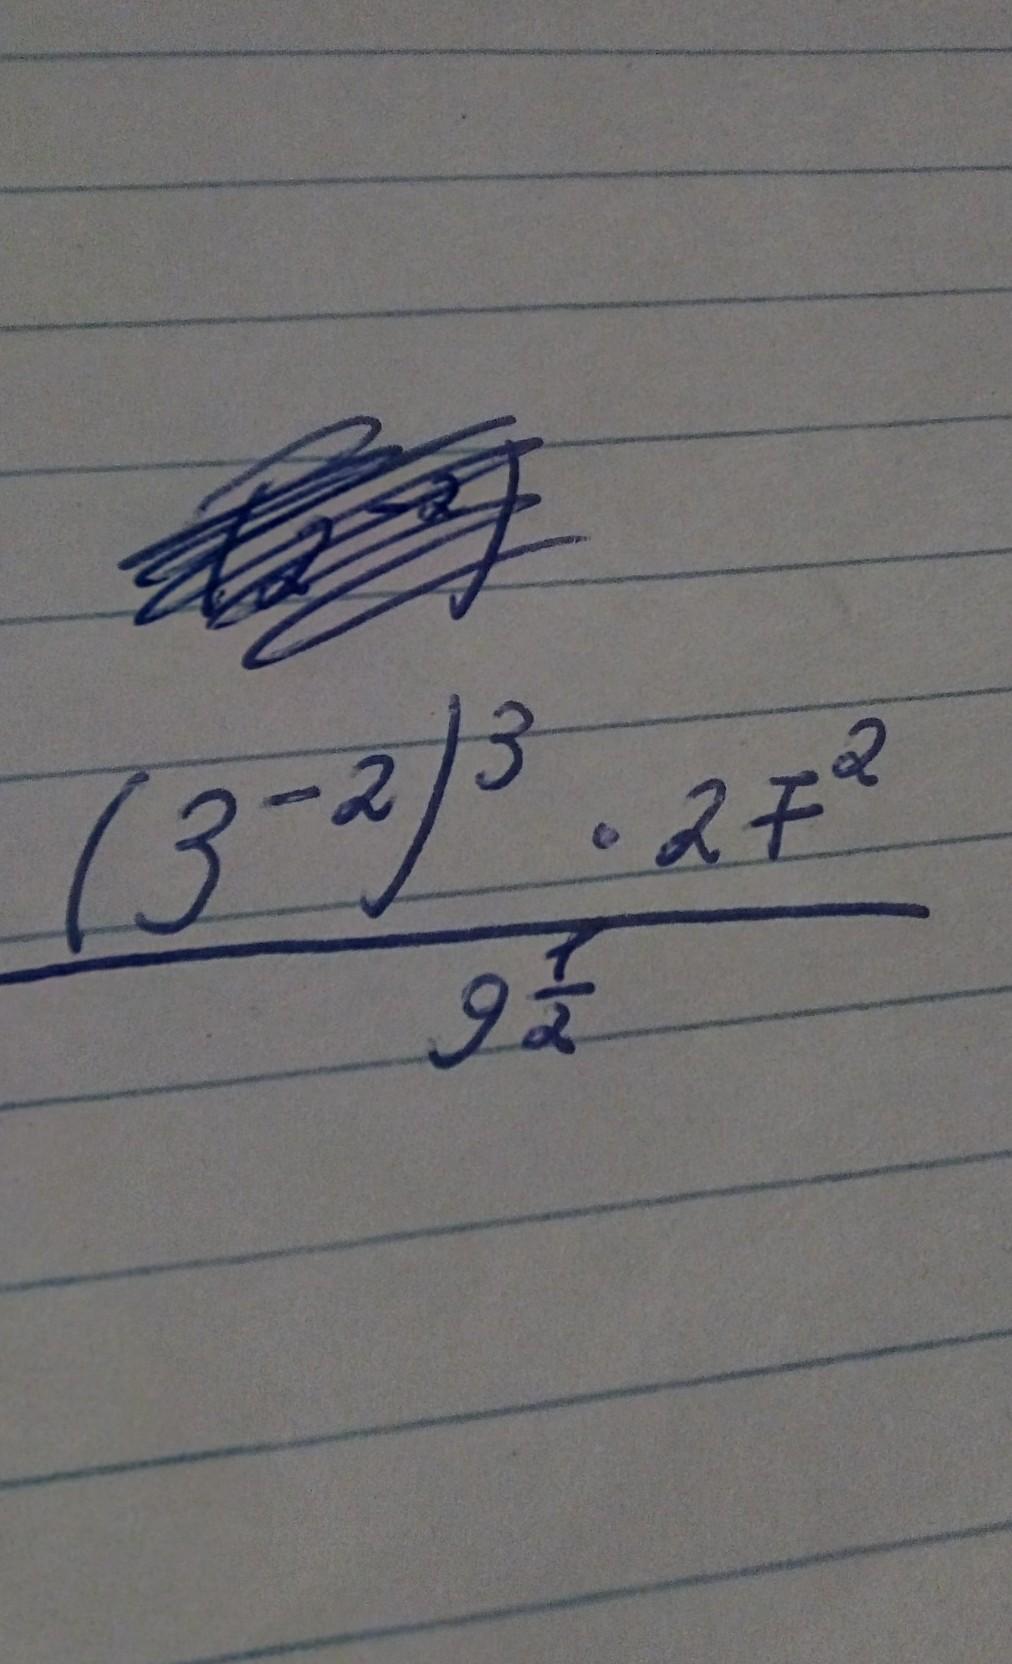 (3⁻²)³ · 27²
9^(1/2)